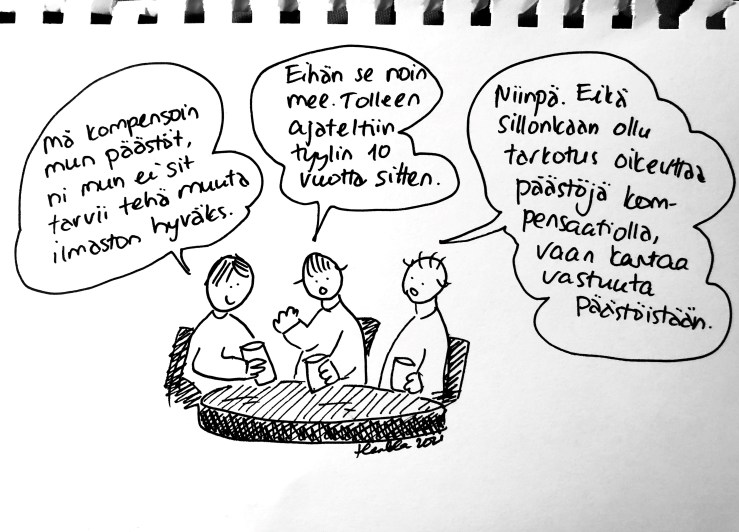 Mä kompensoin
mun päästöt,
ni mun ei sit
tarvii tehä muuta
ilmaston hyväks.
Eihän se noin
mee. Tolleen
ajateltiin
tyylin 10
vuotta sitten.
Niinpä. Eikä
sillonkaan ollu
tarkotus oikeuttaa
päästöjä kom-
pensaatiolla,
vaan kantaa
vastuuta
päästöistään.
2021